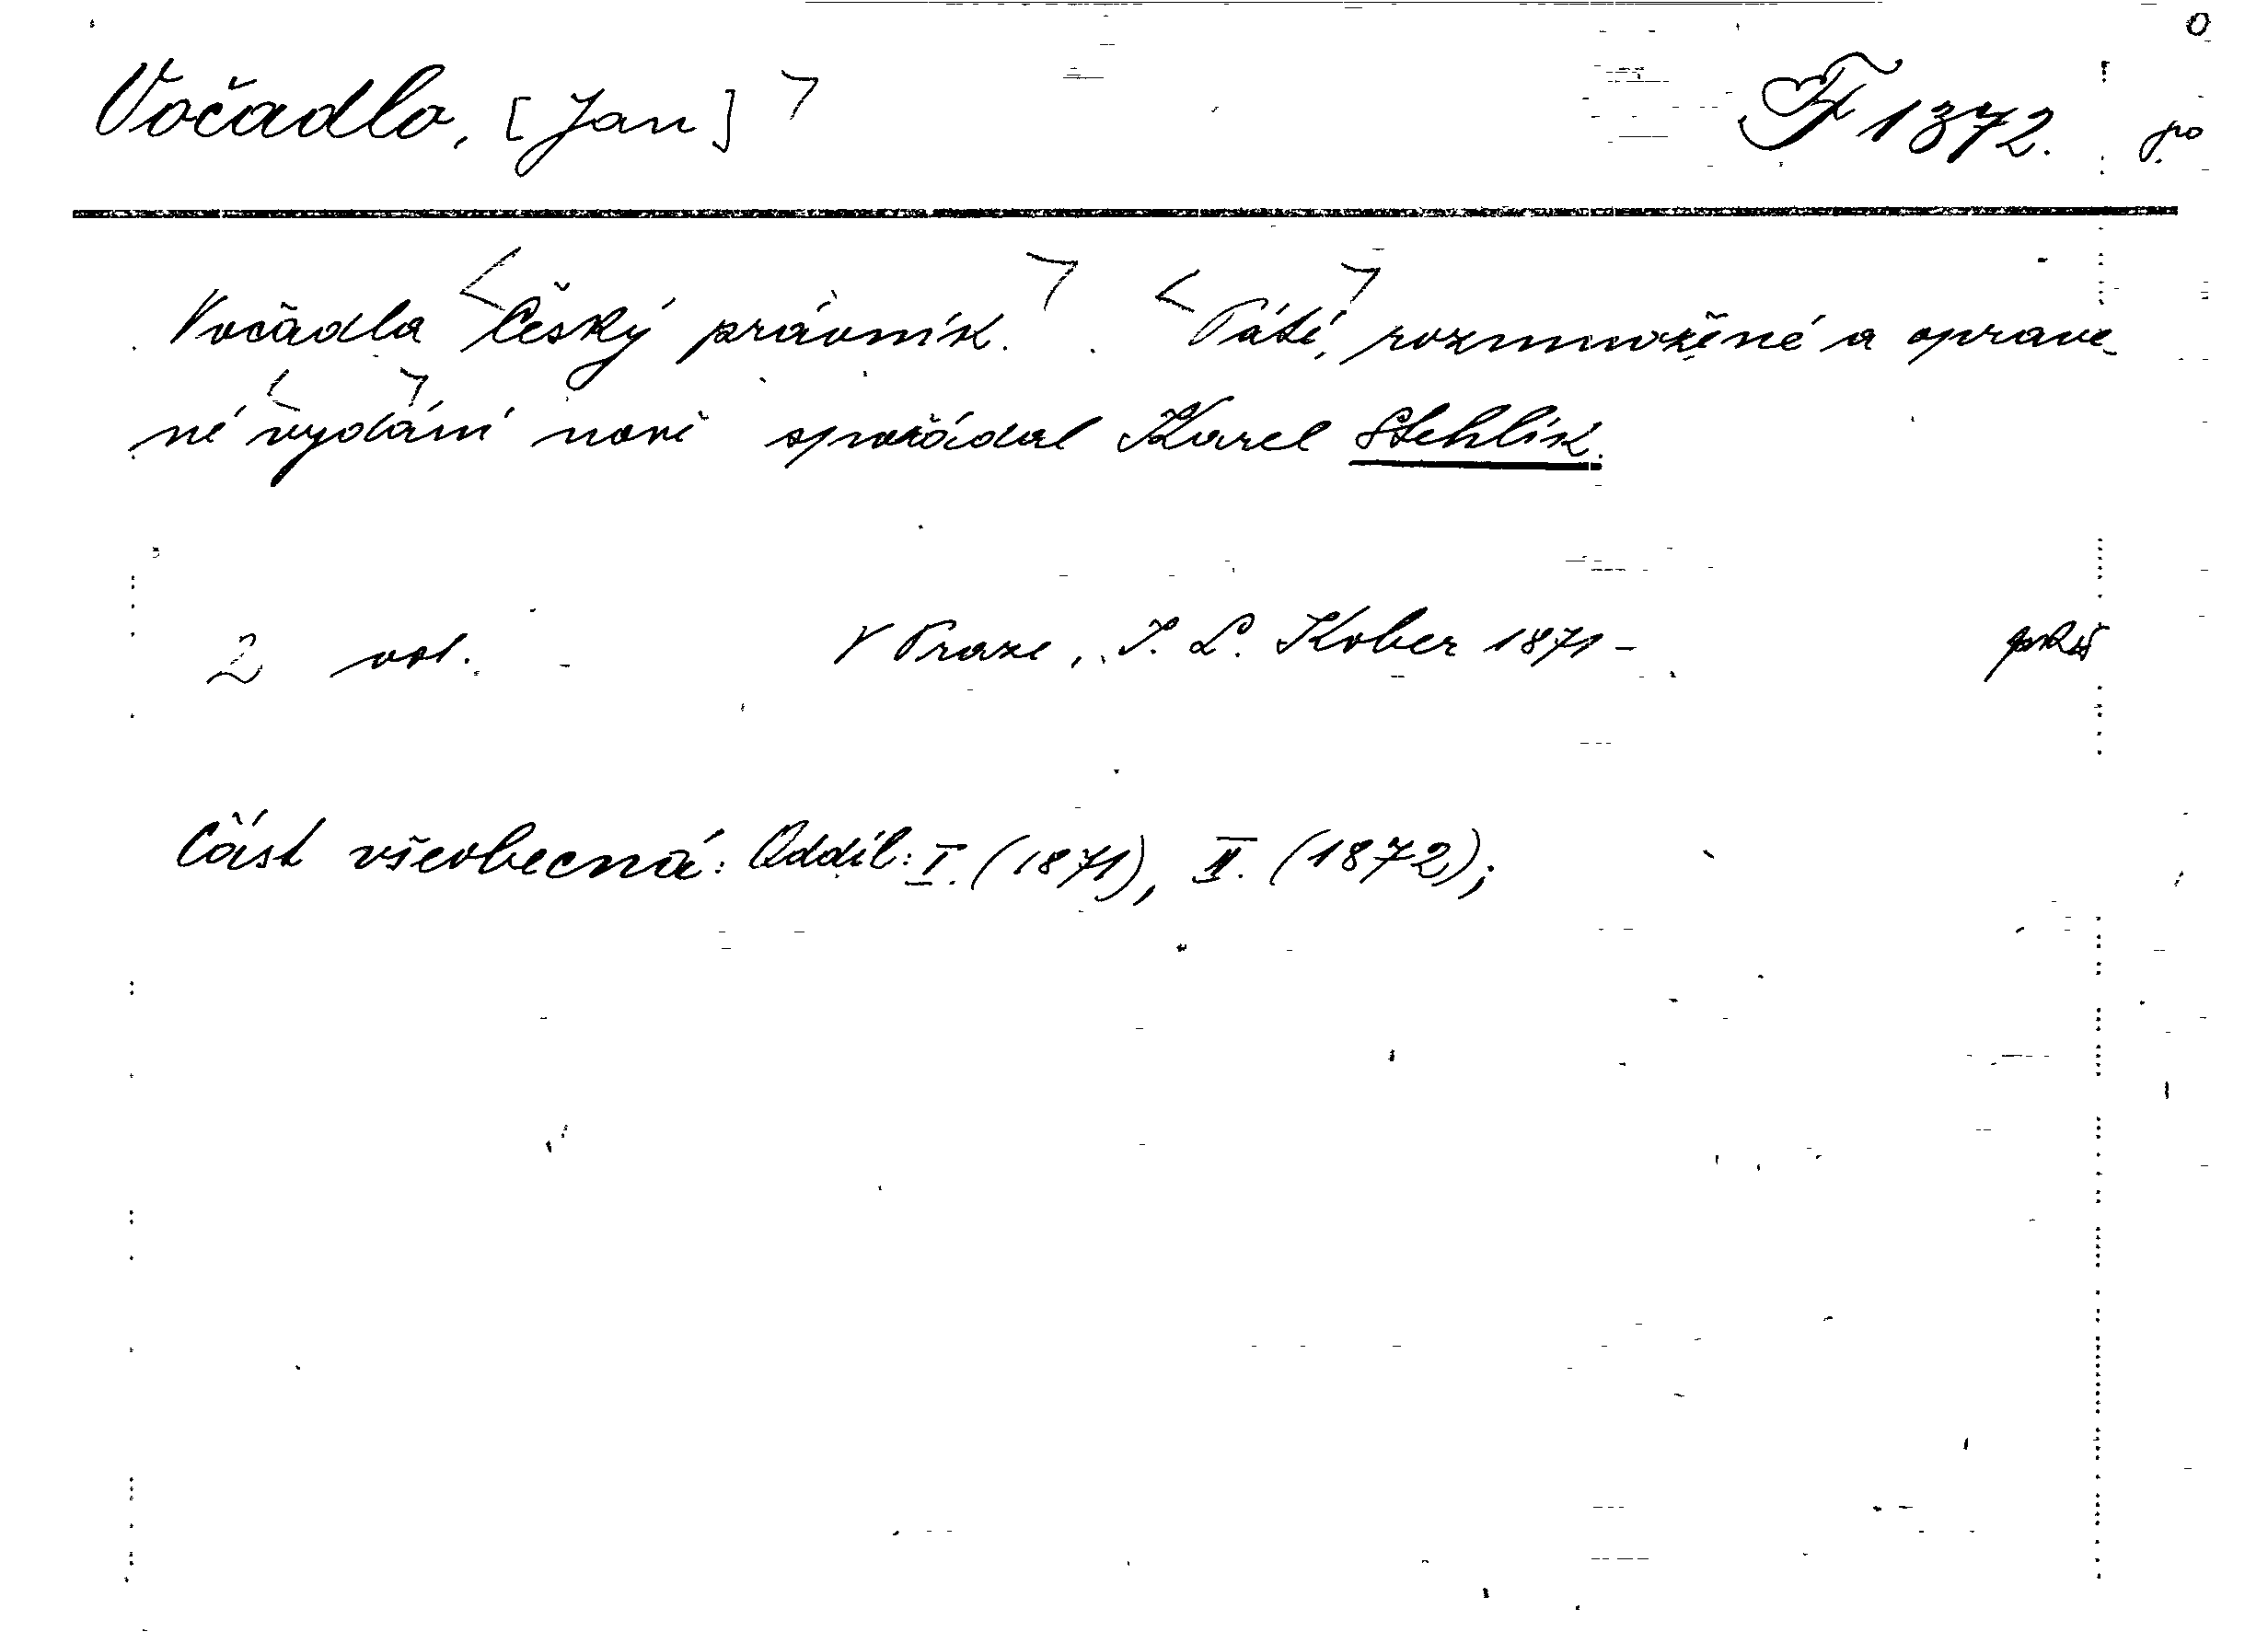 Vočadlo, [Jan] F 1372. po
Vočadla Český právník. Páté, rozmnožené a oprave-
né vydání nově spořádal Karel Stehlík.
2 vol. V Praze, I. L. Kober 1871 -
Část všeobecná: Oddíl: I. (1871), II. (1872);